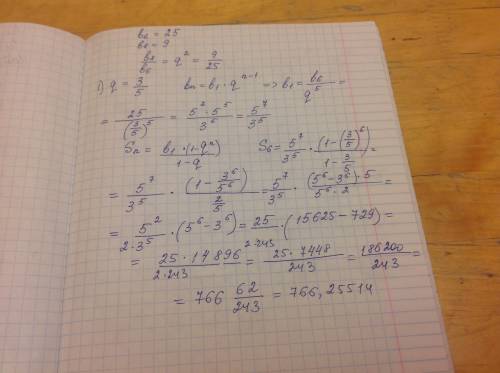 b₆ = 25
b₈ = 9
b₈/b₆ = q² = 9/25
1) q = 3/5   bₙ = b₁ · qⁿ⁻¹ => b₁ = b₆/q⁵ =
= 25/(3/5)⁵ = 5² · 5⁵/3⁵ = 5⁷/3⁵
Sₙ = b₁ · (1-qⁿ)/1-q   S₆ = 5⁷/3⁵ · (1-(3/5)⁶)/1-3/5 =
= 5⁷/3⁵ · (1 - 3⁶/5⁶)/2/5 = 5⁷/3⁵ · (5⁶-3⁶) · 5/5⁶ · 2 =
= 5²/2 · 3⁵ · (5⁶-3⁶) = 25/2 · 243 · (15625 - 729) =
= 25 · 14896/2 · 243 = 25 · 7448/243 = 186200/243 =
= 766 62/243 = 766,25514